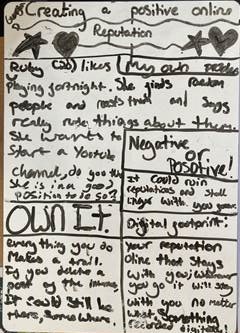 Creating a positive online
Reputation
Ruby (20) likes
playing fortnight. She finds Random
people and roasts them and says
really rude things about them.
She wants to
Start a Youtube
Channel, do you think
She is in a good
position to do so?
My own
Negative
or
Positive!
It could ruin
reputations and still
with you
OWN It.
every thing you do
Makes a trail.
If you delete a
post of the internet,
It could still be
there, Somewhere.
Digital footprint:
your reputation
Oline that stays
with you, wherever
you go it will stay
with you no matter
what. Something
digital